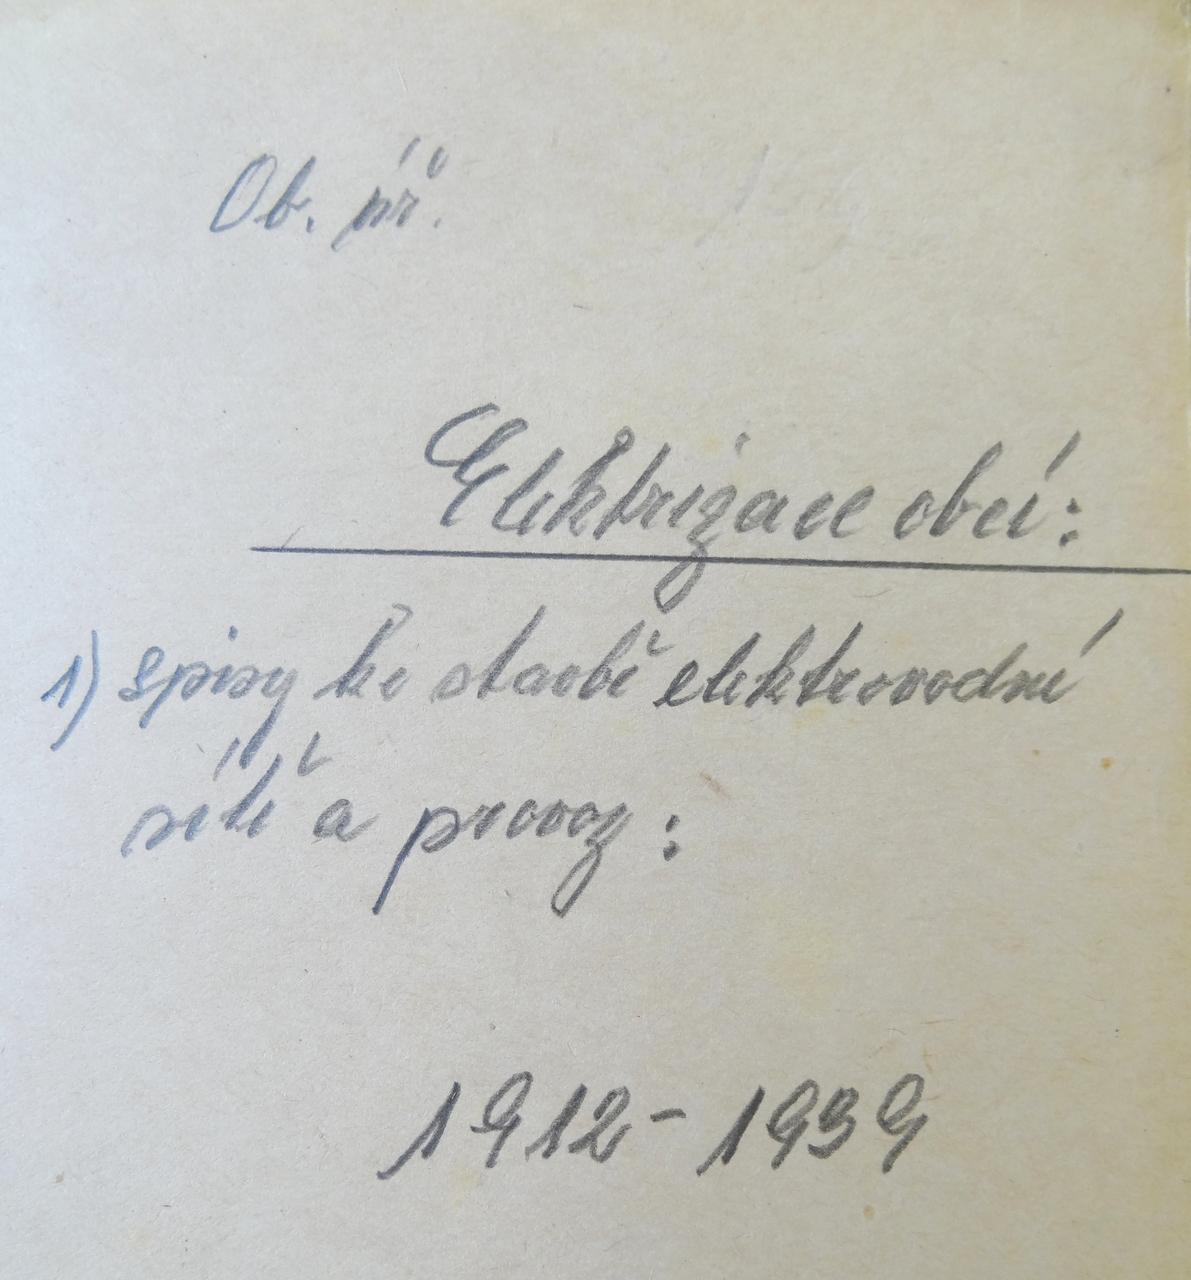 Ob. úř.
Elektrizace obcí:
1) spisy ke stavbě elektrovodní
sítě a provoz:
1912 - 1939